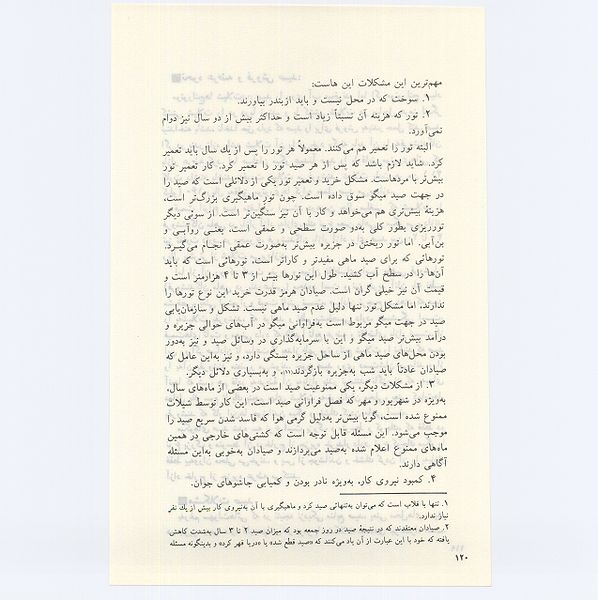 مهم‌ترین این مشکلات این هاست:
۱. سوخت که در محل نیست و باید ازبندر بیاورند.
۲. تور که هزینه آن نسبتاً زیاد است و حداکثر بیش از دو سال نیز دوام
نمی‌آورد.
البته تور را تعمیر هم می‌کنند. معمولاً هر تور را پس از یك سال باید تعمیر
کرد. شاید لازم باشد که پس از هر صید تور را تعمیر کرد. کار تعمیر تور
بیش‌تر با مردهاست. مشکل خرید و تعمیر تور یکی از دلائلی است که صید را
در جهت صید میگو سوق داده است. چون تور ماهیگیری بزرگ‌تر است،
هزینهٔ بیش‌تری هم می‌خواهد و کار با آن نیز سنگین‌تر است. از سوئی دیگر
تورریزی بطور کلی به‌دو صورت سطحی و عمقی است، یعنی روآبی و
بن‌آبی. اما تور ریختن در جزیره بیش‌تر به‌صورت عمقی انجام می‌گیرد.
تورهائی که برای صید ماهی مفیدتر و کاراتر است، تورهائی است که باید
آن‌ها را در سطح آب کشید. طول این تورها بیش از ۳ تا ۴ هزارمتر است و
قیمت آن نیز خیلی گران است. صیادان هرمز قدرت خرید این نوع تورها را
ندارند. اما مشکل تور تنها دلیل عدم صید ماهی نیست. تشکل و سازمان‌یابی
صید در جهت میگو مربوط است به‌فراوانی میگو در آب‌های حوالی جزیره و
درآمد بیش‌تر صید میگو و این با سرمایه‌گذاری در وسائل صید و نیز به‌دور
بودن محل‌های صید ماهی از ساحل جزیره بستگی دارد، و نیز به‌این عامل که
صیادان عادتاً باید شب به‌جزیره بازگردند(۱)، و به‌بسیاری دلائل دیگر.
۳. از مشکلات دیگر، یکی ممنوعیت صید است در بعضی از ماه‌های سال،
به‌ویژه در شهریور و مهر که فصل فراوانی صید است. این کار توسط شیلات
ممنوع شده است، گویا بیش‌تر به‌دلیل گرمی هوا که فاسد شدن سریع صید را
موجب می‌شود. این مسئله قابل توجه است که کشتی‌های خارجی در همین
ماه‌های ممنوع اعلام شده به‌صید می‌پردازند و صیادان به‌خوبی به‌این مسئله
آگاهی دارند.
۴. کمبود نیروی کار، به‌ویژه نادر بودن و کمیابی جاشوهای جوان.
۱. تنها با قلاب است که می‌توان به‌تنهائی صید کرد و ماهیگیری با آن به‌نیروی کار بیش از یك نفر
نیاز ندارد.
۲. صیادان معتقدند که در نتیجهٔ صید در روز جمعه بود که میزان صید ۲ تا ۳ سال به‌شدت کاهش
یافته که خود با این عبارت از آن یاد می‌کنند که «صید قطع شد» یا «دریا قهر کرد» و بدینگونه مسئله
۱۲۰